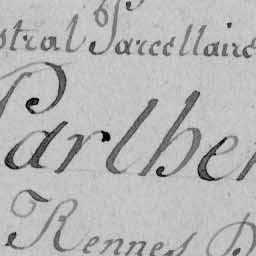 stral Parcellaire
Parthe
Rennes D